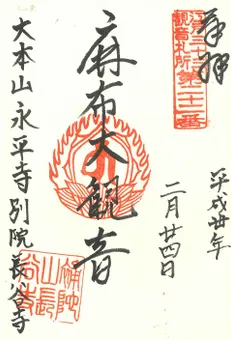 奉拝
江戸三十三
観音札所
第二十二番
平成廿年
二月廿四日
麻布大観音
大本山永平寺別院長谷寺
補陀
山長
谷寺